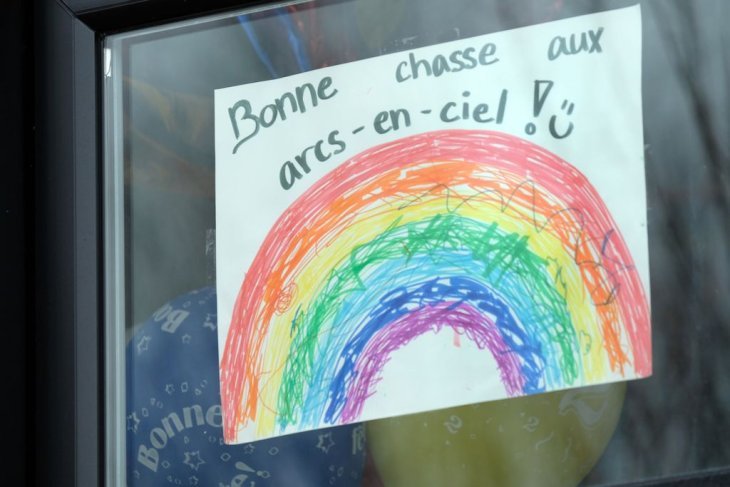 Bonne chasse aux
arcs-en-ciel !
Bonne